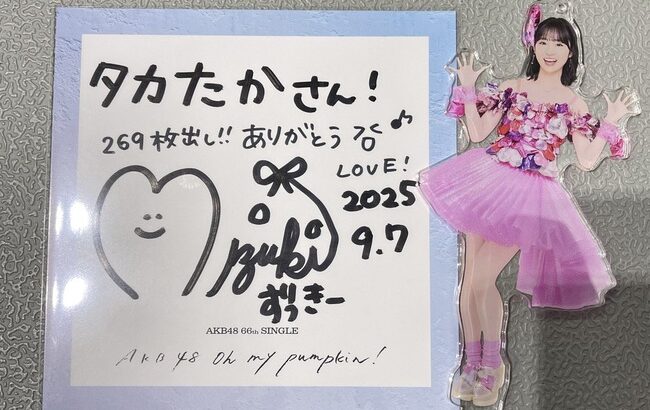 タカたかさん!
269枚出し!! ありがとう
LOVE!
2025
9.7
izuki
ずっきー
AKB48 66th SINGLE
AKB48 Oh my pumpkin!